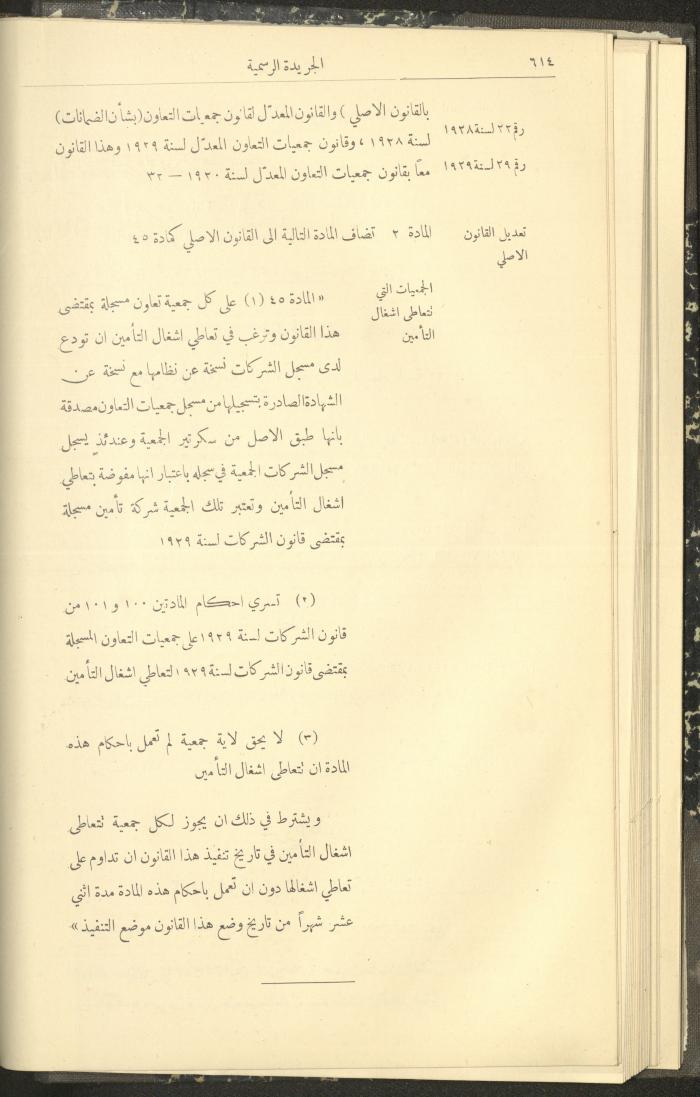 ٦١٤
الجريدة الرسمية
بالقانون الاصلي ) والقانون المعدّل لقانون جمعيات التعاون (بشأن الضمانات)
رقم ٢٢ لسنة ١٩٢٨
لسنة ١٩٢٨ ، وقانون جمعيات التعاون المعدّل لسنة ١٩٢٩ وهذا القانون
رقم ٢٩ لسنة ١٩٢٩
معاً بقانون جمعيات التعاون المعدّل لسنة ١٩٢٠ — ٣٢
تعديل القانون
الاصلي
المادة ٢ تضاف المادة التالية الى القانون الاصلي كمادة ٤٥
الجمعيات التي
نتعاطى اشغال
التأمين
« المادة ٤٥ (١) على كل جمعية تعاون مسجلة بمقتضى
هذا القانون وترغب في تعاطي اشغال التأمين ان تودع
لدى مسجل الشركات نسخة عن نظامها مع نسخة عن
الشهادة الصادرة بتسجيلها من مسجل جمعيات التعاون مصدقة
بانها طبق الاصل من سكرتير الجمعية وعندئذٍ يسجل
مسجل الشركات الجمعية في سجله باعتبار انها مفوضة بتعاطي
اشغال التأمين وتعتبر تلك الجمعية شركة تأمين مسجلة
بمقتضى قانون الشركات لسنة ١٩٢٩
(٢) تسري احكام المادتين ١٠٠ و ١٠١ من
قانون الشركات لسنة ١٩٢٩ على جمعيات التعاون المسجلة
بمقتضى قانون الشركات لسنة ١٩٢٩ لتعاطي اشغال التأمين
(٣) لا يحق لاية جمعية لم تعمل باحكام هذه
المادة ان نتعاطى اشغال التأمين
ويشترط في ذلك ان يجوز لكل جمعية نتعاطى
اشغال التأمين في تاريخ تنفيذ هذا القانون ان تداوم على
تعاطي اشغالها دون ان تعمل باحكام هذه المادة مدة اثني
عشر شهراً من تاريخ وضع هذا القانون موضع التنفيذ »